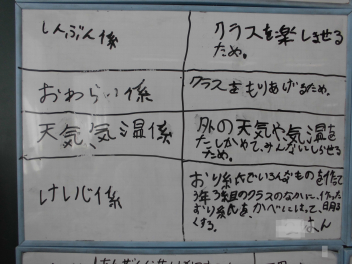 しんぶん係
クラスを楽しませる
ため。
おわらい係
クラスをもりあげるため。
天気、気温係
外の天気や気温を
たしかめて、みんなにしらせる
ため。
けいじ係
おり紙でいろんなものを作って
のクラスのなかに、作った
おり紙を、かべにはって、明る
くする。